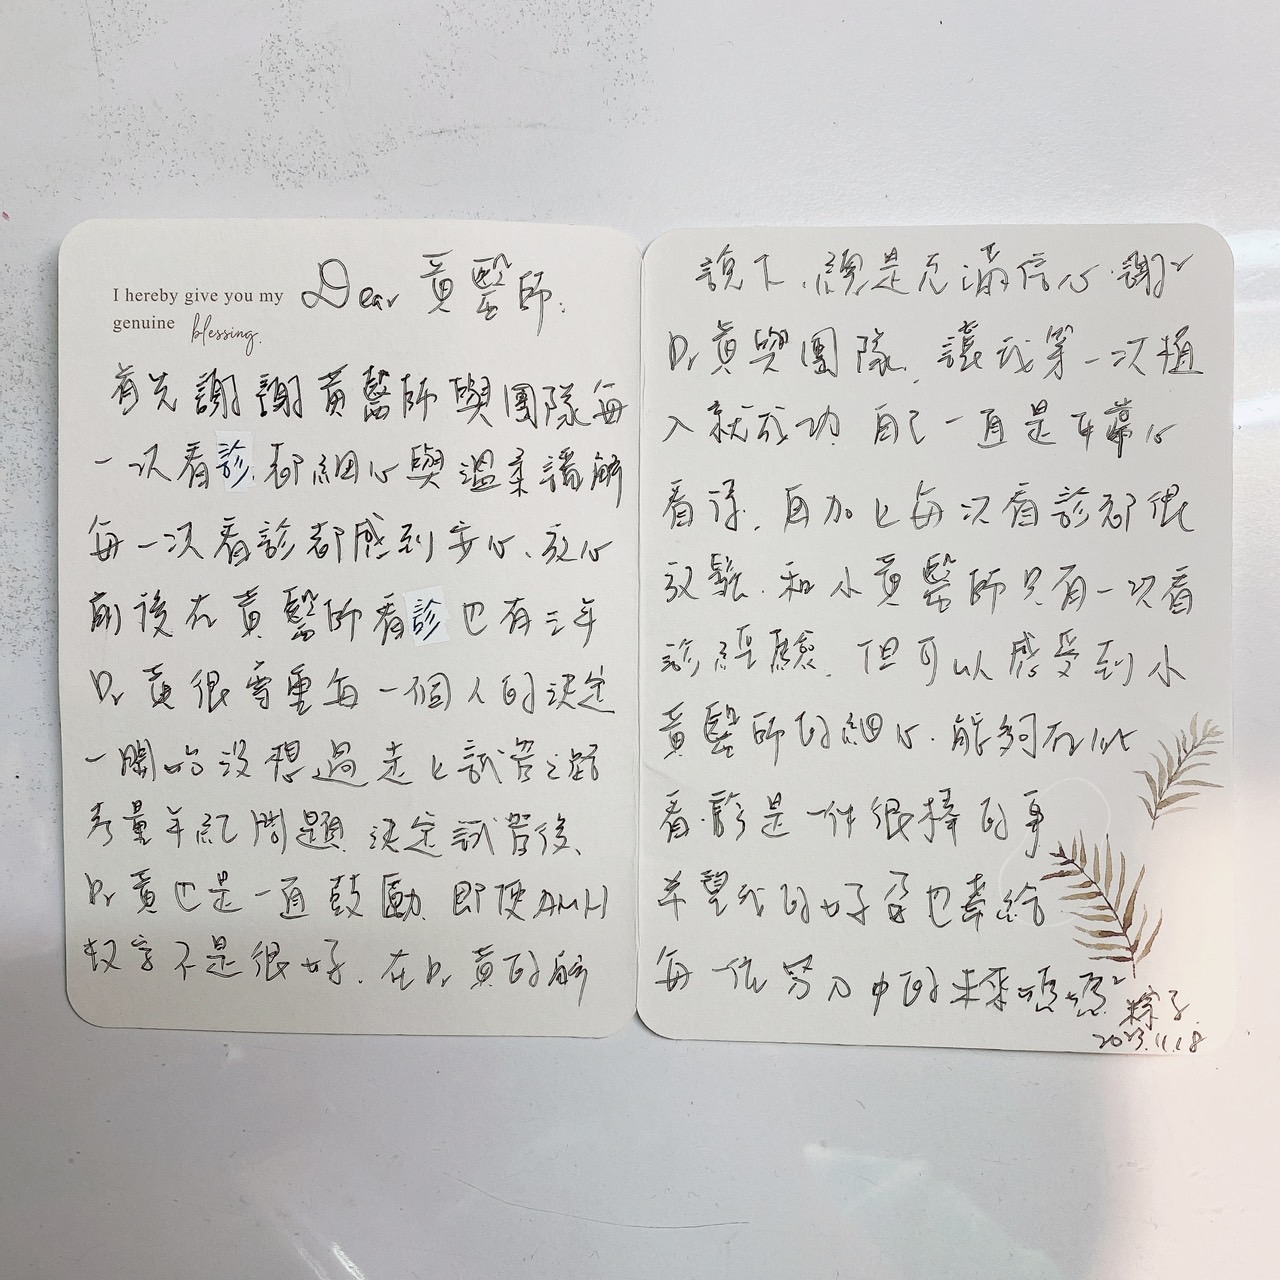 I hereby give you my
genuine blessing.
Dear 黃醫師:
首先謝謝黃醫師與團隊每
一次看診都細心與溫柔講解
每一次看診都感到安心、放心
前後在黃醫師看診也有三年
Dr 黃很尊重每一個人的決定
一開始沒想過走上試管之路
考量年紀問題 決定試管後、
Dr 黃也是一直鼓勵 即使AMH
數字不是很好. 在Dr 黃的解
說下.總是充滿信心.謝²
Dr 黃與團隊, 讓我第一次植
入就成功 自己一直是平常心
看待. 再加上每次看診都很
放鬆. 和小黃醫師只有一次看
診經驗. 但可以感受到小
黃醫師的細心. 能夠在此
看診是一件很棒的事
希望我的好孕也奉給
每一位努力中的未來媽媽²
粽子.
2023.11.18